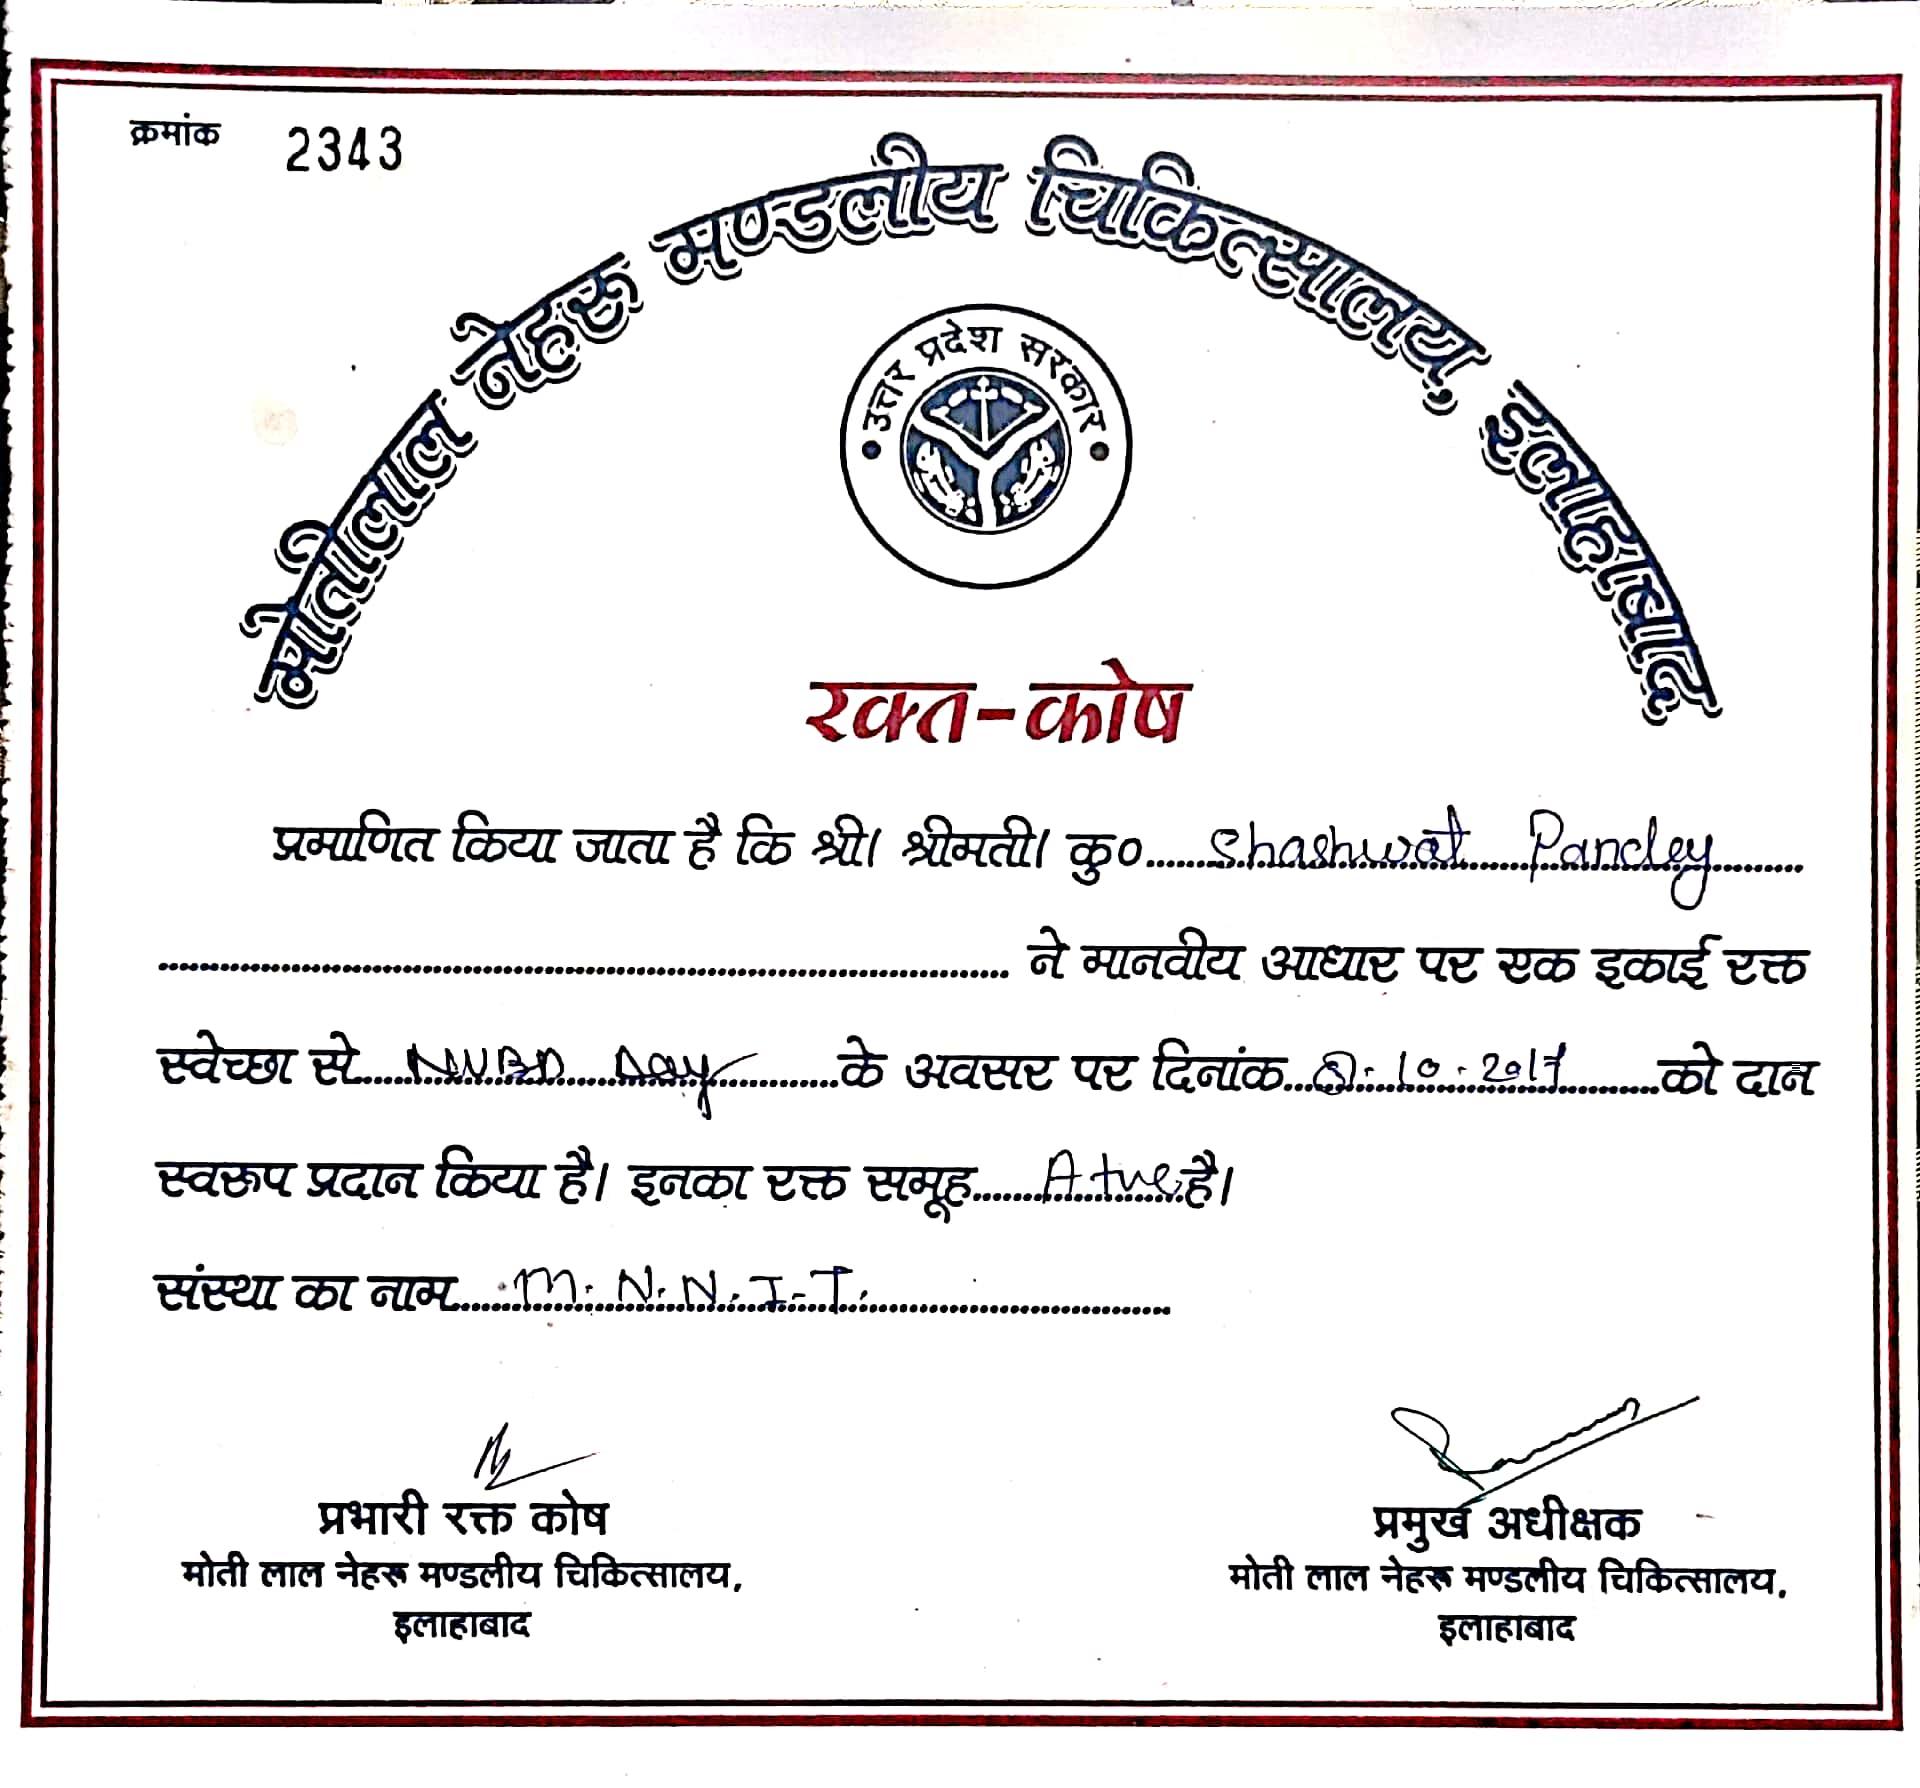 क्रमांक 2343
मोतीलाल नेहरू मण्डलीय चिकित्सालय, इलाहाबाद
उत्तर प्रदेश सरकार
रक्त-कोष
प्रमाणित किया जाता है कि श्री। श्रीमती। कु०........Shashwat Pandey........
........ ने मानवीय आधार पर एक इकाई रक्त
स्वेच्छा से........NVBD Day........के अवसर पर दिनांक........10.2017........को दान
स्वरूप प्रदान किया है। इनका रक्त समूह........A+ve........है।
संस्था का नाम........M.N.N.I.T.........
प्रभारी रक्त कोष
मोती लाल नेहरू मण्डलीय चिकित्सालय,
इलाहाबाद
प्रमुख अधीक्षक
मोती लाल नेहरू मण्डलीय चिकित्सालय,
इलाहाबाद